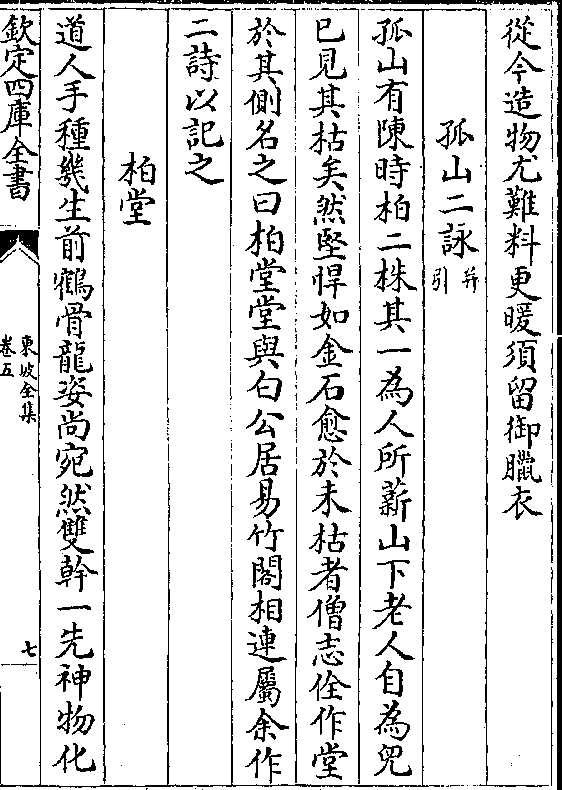 從今造物尤難料更暖須留御臘衣
孤山二詠并引
孤山有陳時柏二株其一為人所薪山下老人自為兒
已見其枯矣然堅悍如金石愈於未枯者僧志佺作堂
於其側名之曰柏堂堂與白公居易竹閣相連屬余作
二詩以記之
柏堂
道人手種幾生前鶴骨龍姿尚宛然雙幹一先神物化
欽定四庫全書
東坡全集
卷五
七